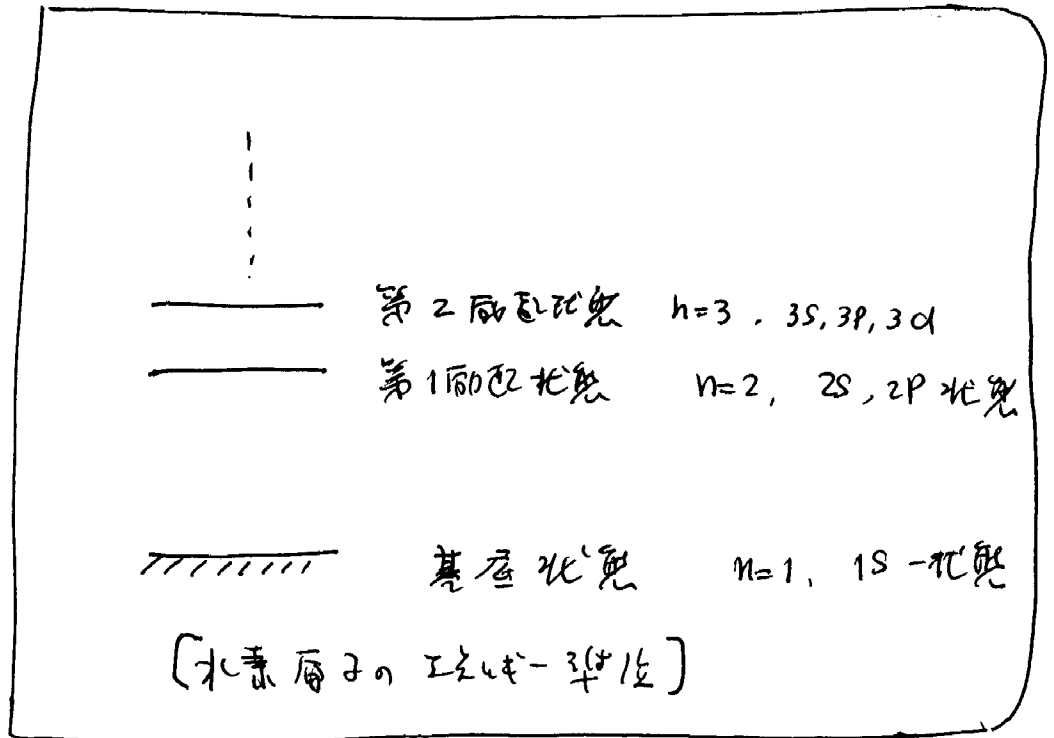 第2励起状態 n=3, 3S, 3P, 3d
第1励起状態 n=2, 2S, 2P 状態
基底状態 n=1, 1S-状態
[水素原子のエネルギー準位]